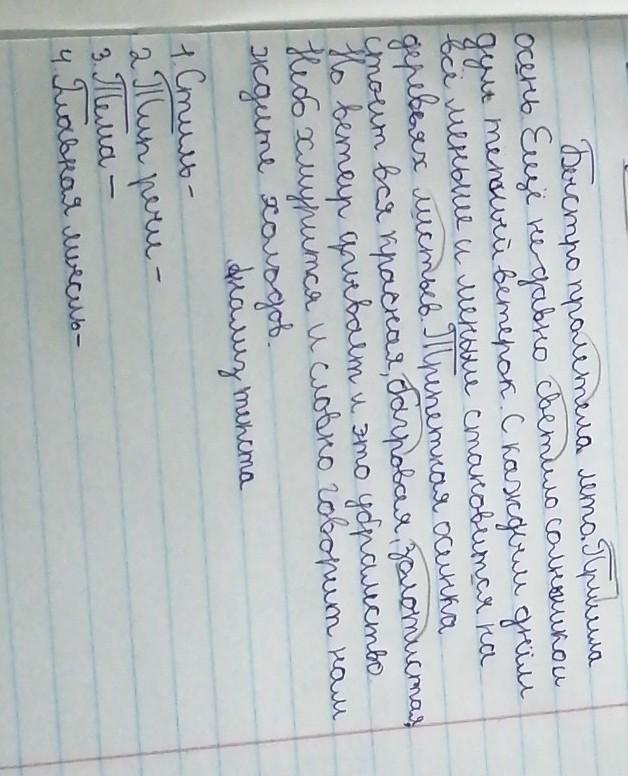 Быстро пролетела лето. Пришла
осень Ещё не давно светило солнышко и
дул тёплый ветерок. С каждым днём
всё меньше и меньше становится на
деревьях листьев. Трепетная осинка
стоит вся красная, багровая, золотистая,
Но ветер дивает и это убранство
Небо хмурится и словно говорит нам
ждите холодов.
Анализ текста
1. Стиль-
2. Тип речи-
3. Тема-
4. Главная мысль-